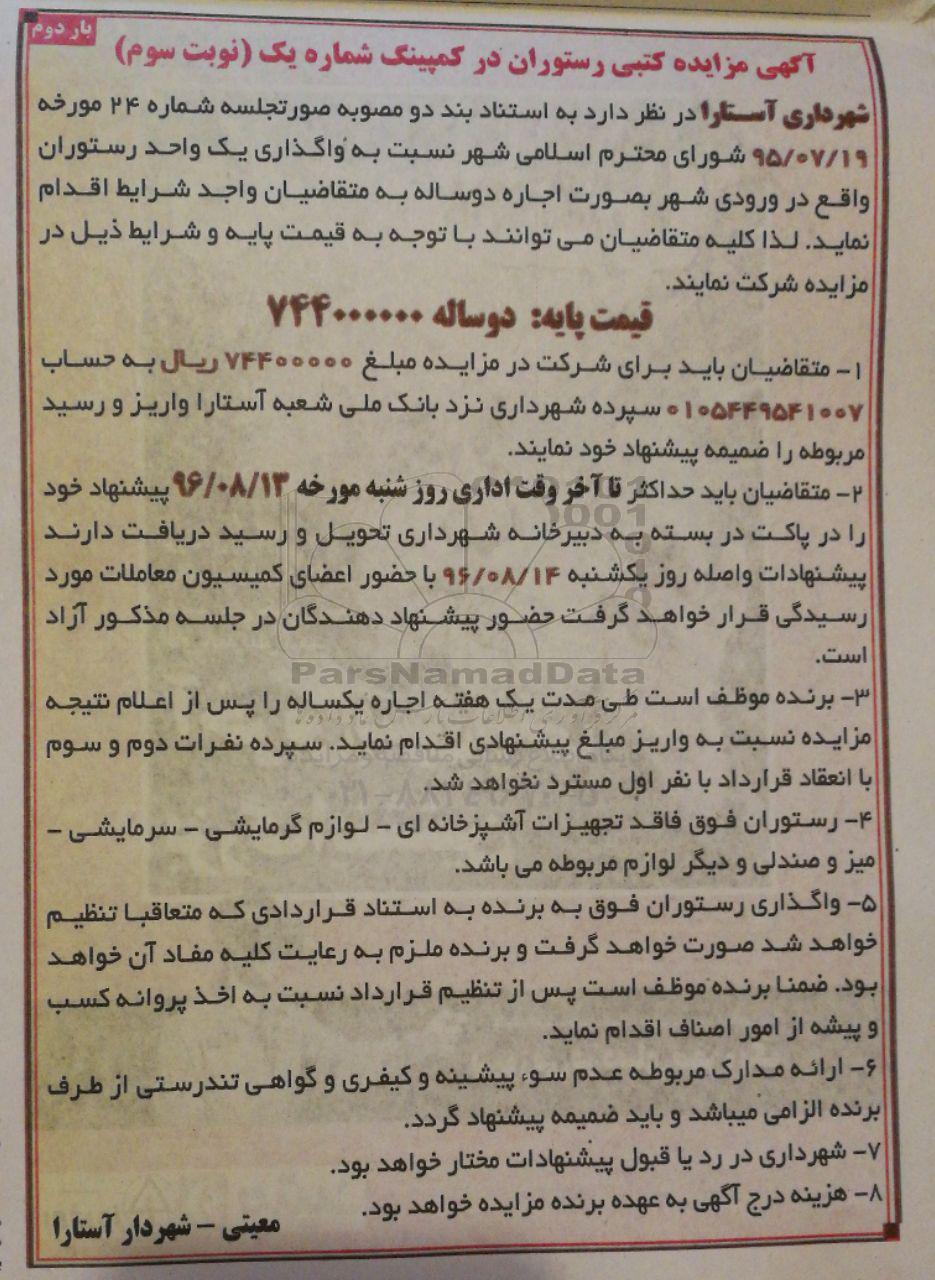 بار دوم
آگهی مزایده کتبی رستوران در کمپینگ شماره یک (نوبت سوم)
شهرداری آستارا در نظر دارد به استناد بند دو مصوبه صورتجلسه شماره ۲۴ مورخه
۹۵/۰۷/۱۹ شورای محترم اسلامی شهر نسبت به واگذاری یک واحد رستوران
واقع در ورودی شهر بصورت اجاره دوساله به متقاضیان واجد شرایط اقدام
نماید. لذا کلیه متقاضیان می توانند با توجه به قیمت پایه و شرایط ذیل در
مزایده شرکت نمایند.
قیمت پایه: دوساله ۷۴۴۰۰۰۰۰۰
۱- متقاضیان باید برای شرکت در مزایده مبلغ ۷۴۴۰۰۰۰۰ ریال به حساب
۰۱۰۵۴۴۹۵۴۱۰۰۷ سپرده شهرداری نزد بانک ملی شعبه آستارا واریز و رسید
مربوطه را ضمیمه پیشنهاد خود نمایند.
۲- متقاضیان باید حداکثر تا آخر وقت اداری روز شنبه مورخه ۹۶/۰۸/۱۳ پیشنهاد خود
را در پاکت در بسته به دبیرخانه شهرداری تحویل و رسید دریافت دارند
پیشنهادات واصله روز یکشنبه ۹۶/۰۸/۱۴ با حضور اعضای کمیسیون معاملات مورد
رسیدگی قرار خواهد گرفت حضور پیشنهاد دهندگان در جلسه مذکور آزاد
است.
ParsNamadData
۳- برنده موظف است طی مدت یک هفته اجاره یکساله را پس از اعلام نتیجه
مزایده نسبت به واریز مبلغ پیشنهادی اقدام نماید. سپرده نفرات دوم و سوم
با انعقاد قرارداد با نفر اول مسترد نخواهد شد.
۴- رستوران فوق فاقد تجهیزات آشپزخانه ای - لوازم گرمایشی - سرمایشی -
میز و صندلی و دیگر لوازم مربوطه می باشد.
۵- واگذاری رستوران فوق به برنده به استناد قراردادی که متعاقبا تنظیم
خواهد شد صورت خواهد گرفت و برنده ملزم به رعایت کلیه مفاد آن خواهد
بود. ضمنا برنده موظف است پس از تنظیم قرارداد نسبت به اخذ پروانه کسب
و پیشه از امور اصناف اقدام نماید.
۶- ارائه مدارک مربوطه عدم سوء پیشینه و کیفری و گواهی تندرستی از طرف
برنده الزامی میباشد و باید ضمیمه پیشنهاد گردد.
۷- شهرداری در رد یا قبول پیشنهادات مختار خواهد بود.
۸- هزینه درج آگهی به عهده برنده مزایده خواهد بود.
معیتی - شهردار آستارا